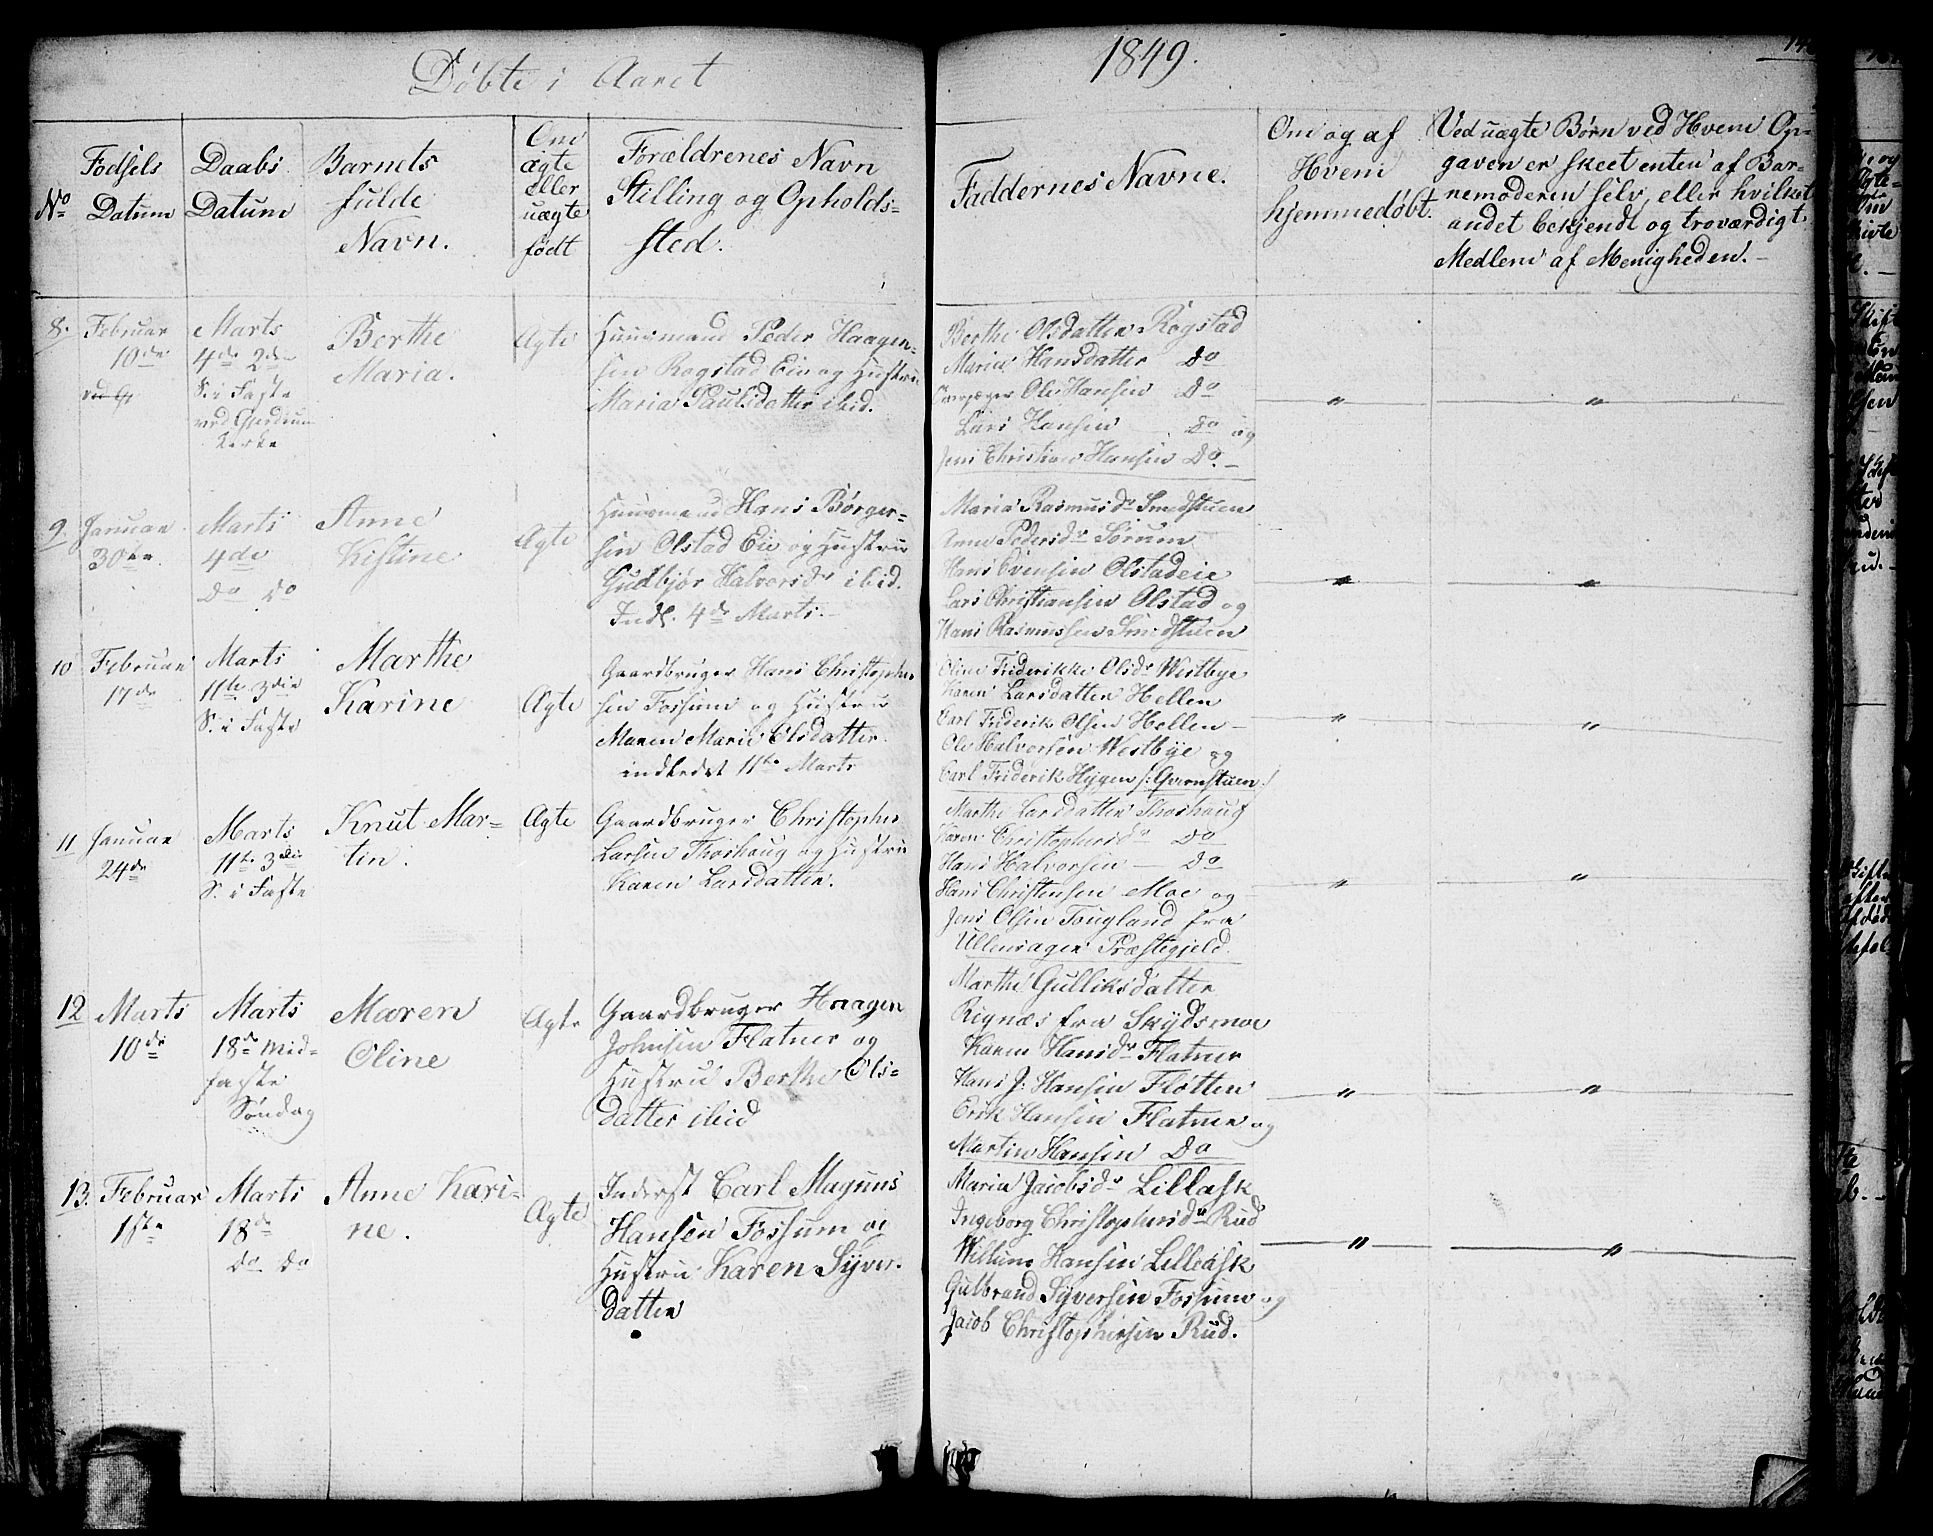 Døbte i Aaret
1849.
No
Fødsels
Datum
Daabs
Datum
Barnets
fulde
Navn.
Om
ægte
eller
uægte
født
Forældrenes Navn
Stilling og Opholds-
sted.
Faddernes Navne.
Om og af
Hvem
hjemmedøbt.
Ved uægte Børn ved Hvem Op-
gaven er skeet enten af Bar-
nemoderen selv, eller hvilket
andet bekjendt og troværdigt
Medlem af Menigheden.
8.
Februar
10de
Marts
4de 2den
S. i Faste
ved
Kirke
Berthe
Maria.
Ægte
Huusmand Peder Haagen-
sen Rogstad Eie og Hustru
Maria Paulsdatter ibid.
Berthe Olsdatter Rogstad
Maria Hansdatter Do
Ole Hansen Do
Lars Hansen Do og
Jens Christian Hansen Do.
"
"
9.
Januar
30te
Marts
4de
Do Do
Anne
Kistine
Ægte
Huusmand Hans Børger-
sen Olstad Eie og Hustru
Gudbjør Halvorsdr ibid.
Indl. 4de Marts.
Maria Rasmusdr Smedstuen
Anne Pedersdr Sørum
Hans Evensen Olstadeie
Lars Christiansen Olstad og
Hans Rasmussen Smedstuen
"
"
10
Februar
17de
Marts
11te 3die
S. i Faste
Marthe
Karine
Ægte
Gaardbruger Hans Christopher-
sen Fossum og Hustru
Maren Marie Olsdatter
indledet 11te Marts
Oline Frederikke Olsdr Westbye
Karen Larsdatter Hellen
Carl Friderik Olsen Hellen
Ole Halvorsen Westbye og
Carl Friderik Hygen /: Qvernstuen :/
"
"
11
Januar
24de
Marts
11te 3die
S. i Faste
Knut Mar-
tin.
Ægte
Gaardbruger Christopher
Larsen Thoshaug og Hustru
Karen Larsdatter.
Marthe Larsdatter Thoshaug
Karen Christophersdr Do
Hans Halvorsen Do
Hans Christensen Moe og
Jens Olsen Fougland fra
Ullensager Præstegjeld.
"
"
12
Marts
10de
Marts
18de Mid-
faste
Søndag
Maren
Oline
Ægte
Gaardbruger Haagen
Johnsen Flatner og
Hustru Berthe Ols-
datter ibid
Marthe Gulliksdatter
Rignæs fra Skydsmoe
Karen Hansdr Flatner
Hans J: Hansen Fløtten
Erik Hansen Flatner og
Martin Hansen Do
"
"
13.
Februar
1ste
Marts
18de
Do Do
Anne Kari-
ne.
Ægte
Inderst Carl Magnus
Hansen Fossum og
Hustru Karen Syver-
datter
Maria Jacobsdr Lilleask
Ingeborg Christophersdr Rud
Willum Hansen Lilleask
Gulbrand Syversen Fossum og
Jacob Christophersen Rud.
"
"